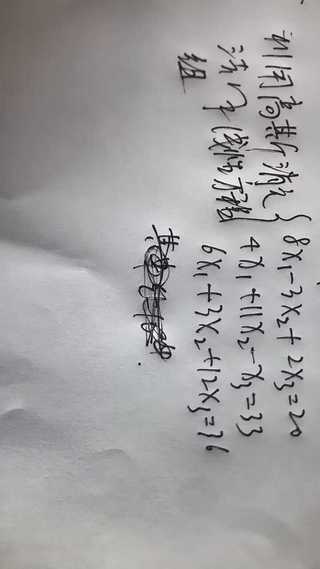 利用高斯消元
法求线性方程
组
8x₁-3x₂+2x₃=20
4x₁+11x₂-x₃=33
6x₁+3x₂+12x₃=36
其